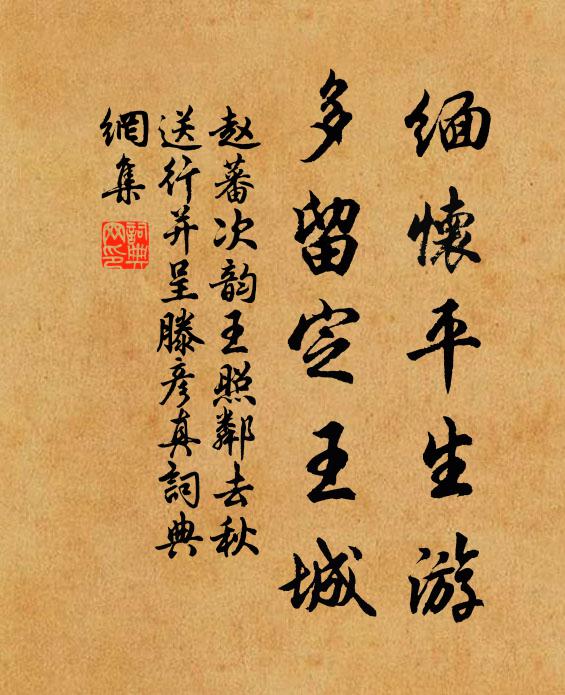 缅懷平生游
多留定王城
赵蕃次韵王照鄰去秋
送行并呈滕彦真詞典
網集
詞典網印